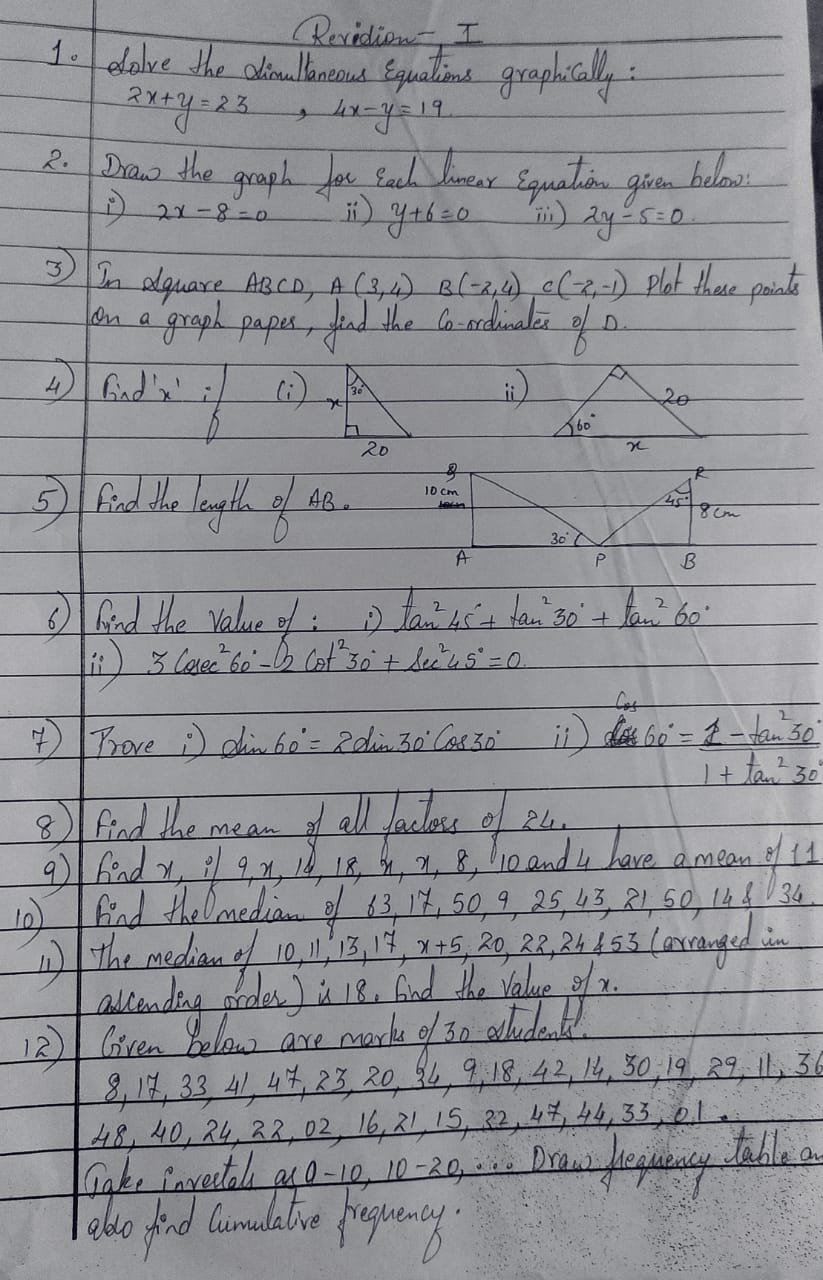 Revision - I
1. Solve the simultaneous Equations graphically :
2x+y=23 , 4x-y=19.
2. Draw the graph for Each linear Equation given below:
i) 2x-8=0 ii) y+6=0 iii) 2y-5=0.
3) In square ABCD, A (3,4) B(-2,4) C(-2,-1) Plot these points
on a graph paper, find the Co-ordinates of D.
4) find 'x' if (i) x 30° 20 ii) 60° 20 x
5) Find the length of AB. Q 10 cm A 30° P R 45° 8 cm B
6) find the value of : i) tan²45° + tan²30° + tan²60°
ii) 3 Cosec²60° - 2 Cot²30° + Sec²45° = 0.
7) Prove i) sin 60° = 2 sin 30° Cos 30° ii) Cos 60° = 1 - tan²30°
1 + tan²30°
8) find the mean of all factors of 24.
9) find x, if 9, x, 14, 18, x, x, 8, 10 and 4 have a mean of 11
10) find the median of 63, 17, 50, 9, 25, 43, 21, 50, 14 & 34.
11) The median of 10, 11, 13, 17, x+5, 20, 22, 24 & 53 (arranged in
ascending order) is 18. find the value of x.
12) Given below are marks of 30 students.
8, 17, 33, 41, 47, 23, 20, 34, 9, 18, 42, 14, 30, 19, 29, 11, 36
48, 40, 24, 22, 02, 16, 21, 15, 32, 47, 44, 33, 01.
Take as 0-10, 10-20, ... Draw frequency table an
also find Cumulative frequency.